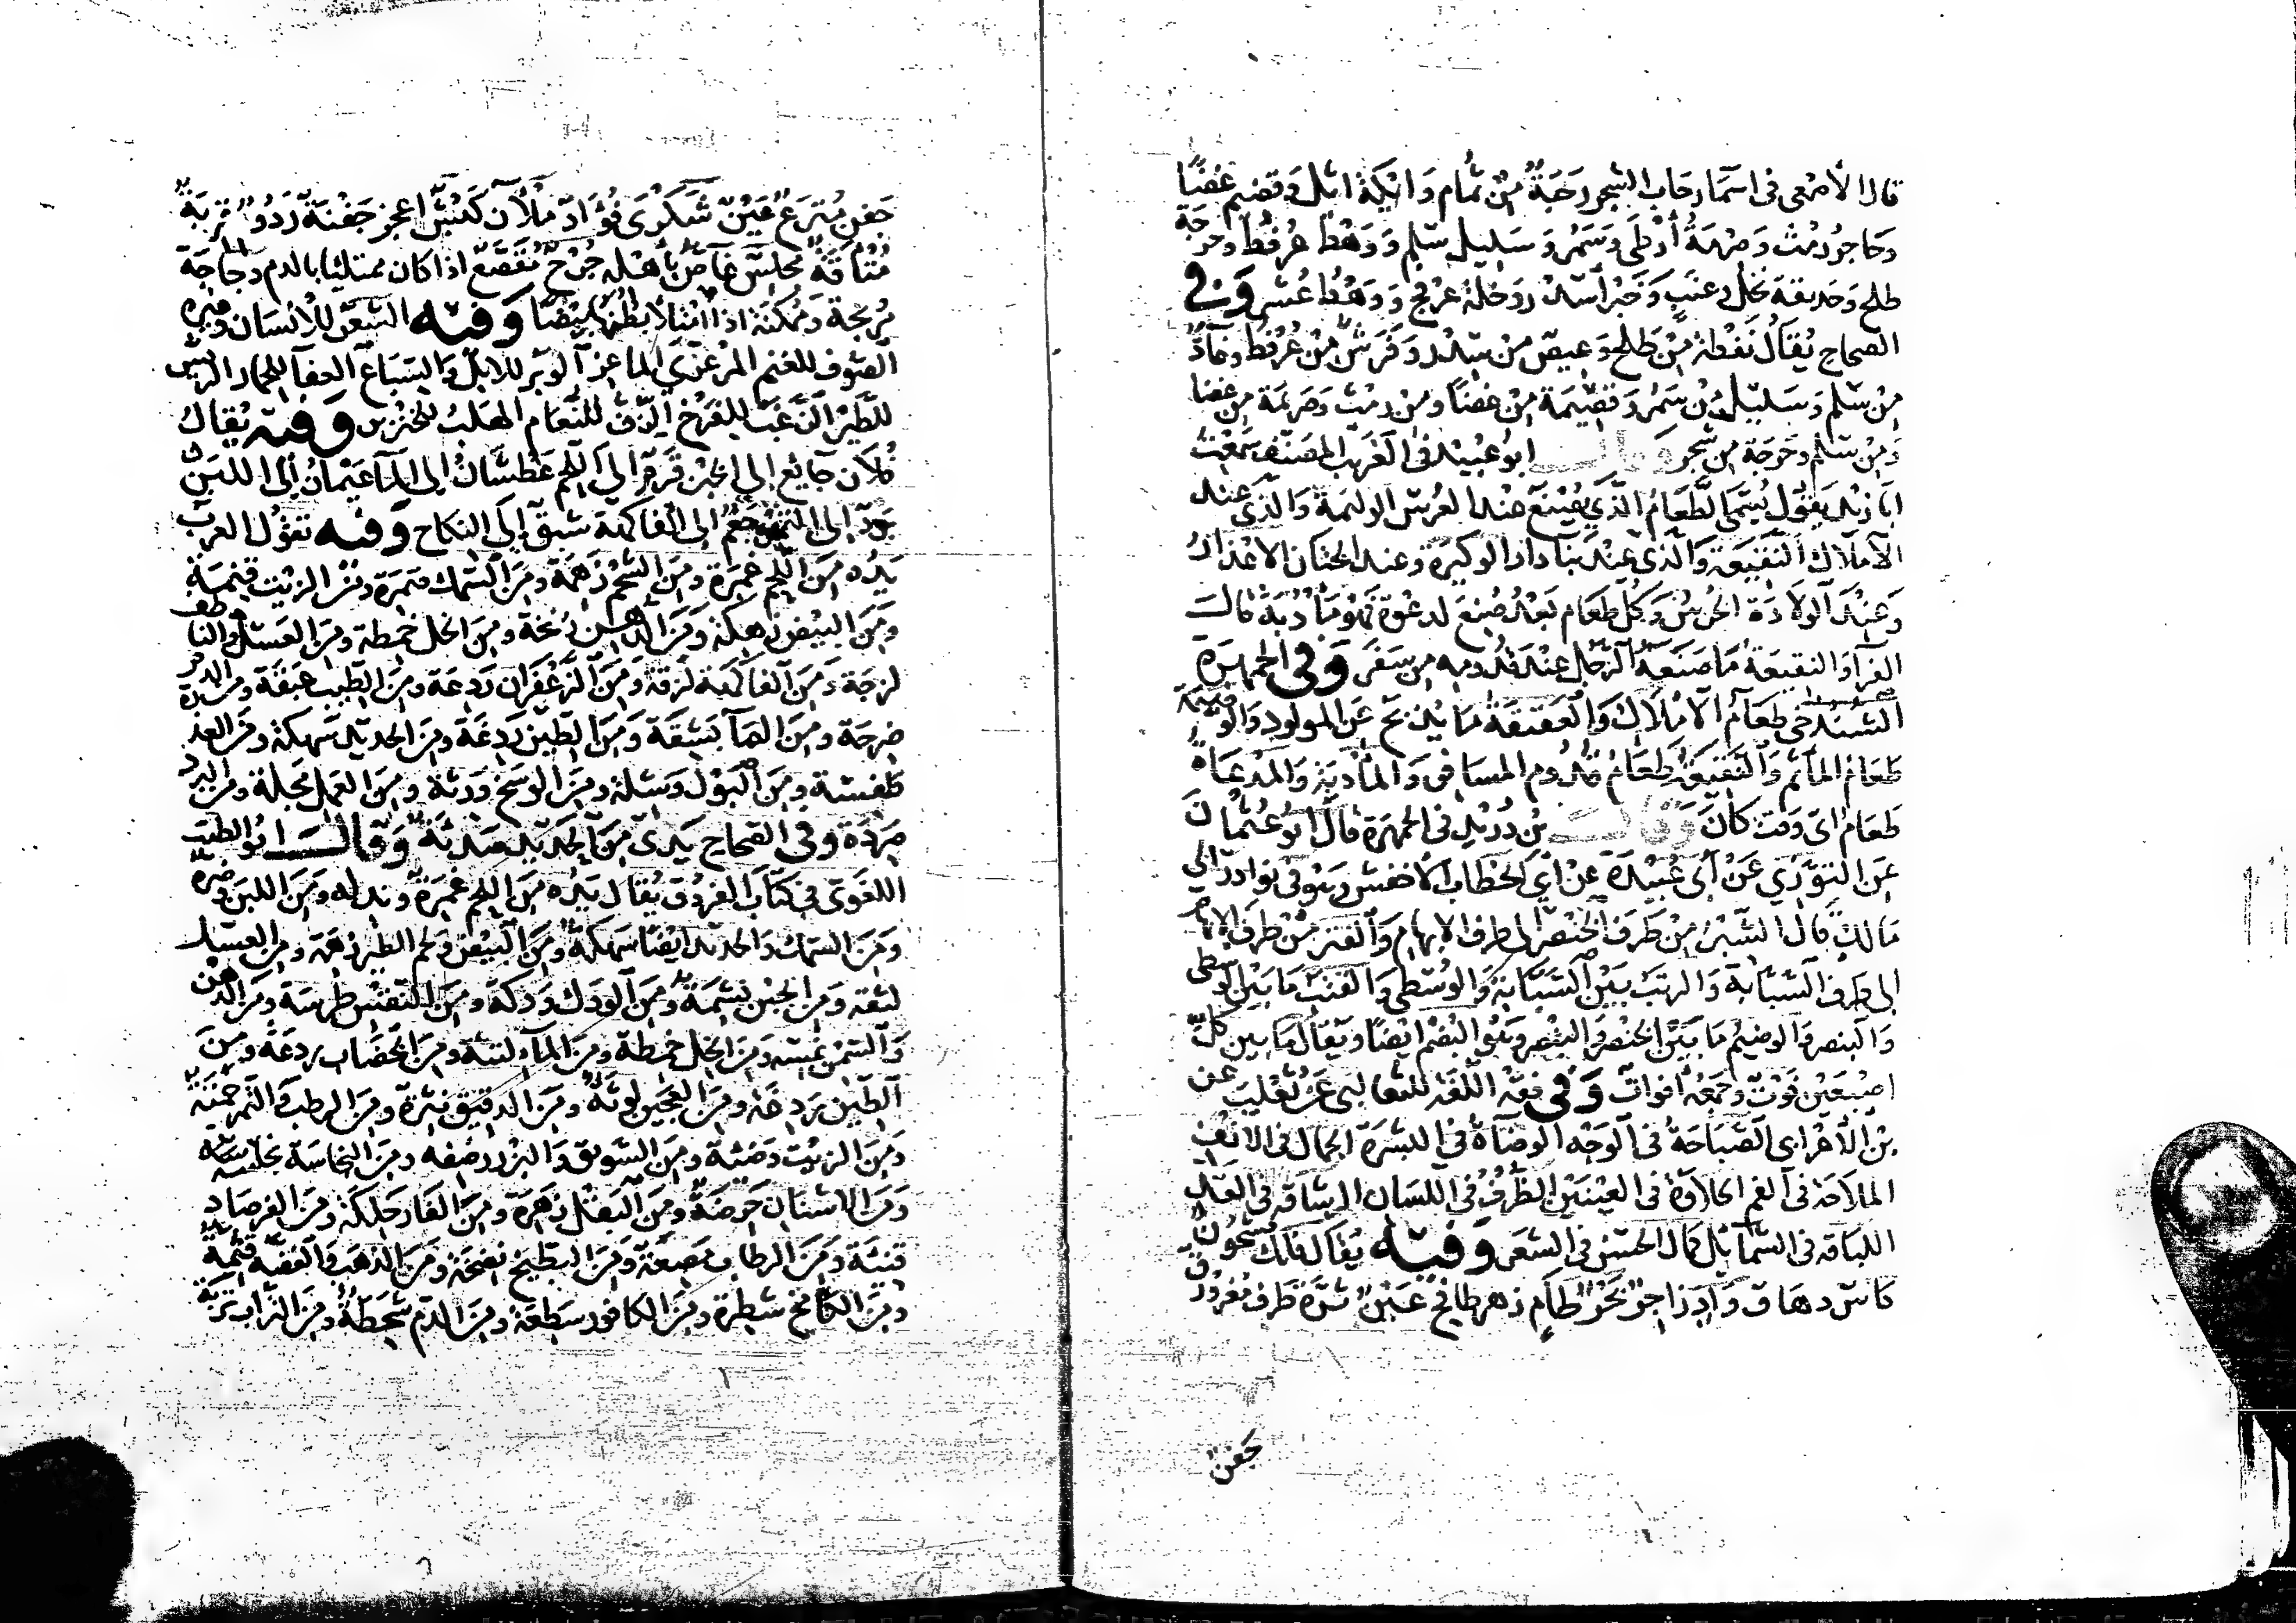 قال الأصمعى فى اسما رحاب الشجر رحبة من ثمام وايكة اثل وقضيم غضًا
وحاجر رمث وصرمة أرطى وسمر وسليل سلم ووهط عرفط وحرجة
طلح وحديقة نخل وعنب وخبرا سدر وخلة عرفج ووهط عشر وفى
الصحاح يقال نفطة من طلح وعيص من سدر وفرش من عرفط
من سلم وسليل من سمر وقصيمة من غضًا ومن رمث وصريمة من غضا
ومن سلم وحرجة من شجر وقال ابو عبيد فى الغريب المصنف سمعت
ابا زيد يقول يسمى الطعام الذى يصنع عند العرس الوليمة والذى عند
الاملاك النقيعة والذى عند بنا دار الوكيرة وعند الختان الاعذار
وعند الولادة الخرس وكل طعام بعد صنع لدعوة فهو مأدبة قال
الفرا والنقيعة ما صنعه الرجل عند قدومه من سفر وفى الجمهرة
الشندخى طعام الاملاك والعقيقة ما يذبح عن المولود والوضيمة
طعام المأتم والنقيعة طعام قدوم المسافر والمأدبة والمدعاة
طعام اى وقت كان وقال بن دريد فى الجمهرة قال ابو عثمان
عن التوزى عن أبى عبيدة عن أبى الخطاب الأخفش وهو فى نوادر ابى
مالك قال الشبر من طرف الخنصر الى طرف الابهام والفتر من طرف الابهام
الى طرف السبابة والرتب بين السبابة والوسطى والعتب ما بين الوسطى
والبنصر والوضيم ما بين الخنصر والبنصر وهو البصم ايضًا ويقال ما بين كل
اصبعين فوت وجمعه أفوات وفى فقه اللغة للثعالبى عن ثعلب عن
بن الأعرابى الصباحة فى الوجه الوضآة فى البشرة الجمال فى الانف
الملاحة فى الفم الحلاوة فى العينين الظرف فى اللسان الرشاقه فى القد
اللباقه فى الشمايل كمال الحسن فى الشعر وفيه يقال فلك مشحون
كاس دهاق واد زاخر بحر طام نهر طافح عين ثرة طرف مغرورق
جفن
جفن مترع عين شكرى فؤاد ملآن كيس اعجر جفنة رذوم قربة
متأقة مجلس غاص بأهله جرح مقصع اذا كان ممتليا بالدم دجاجة
مرتجة وممكنة اذا امتلا بطنها بيضا وفيه الشعر للانسان وغيره
الصوف للغنم المرعزى للماعز الوبر للابل والسباع العفا للحمار الريش
للطير الزغب للفرخ الزف للنعام الهلب للخنزير وفيه يقال
فلان جايع الى الخبز قرم الى اللحم عطشان الى الما عيمان الى اللبن
برد الى التمر جعم الى الفاكهة شبق الى النكاح وفيه تقول العرب
يده من اللحم غمرة ومن الشحم زهمة ومن السمك ضمرة ومن الزيت قنمة
ومن البيض زهكة ومن الدهن زنخة ومن الخل خمطة ومن العسل والناطف
لزجة ومن الفاكهة لزقة ومن الزعفران ردعة ومن الطيب عبقة ومن الدم
ضرجة ومن الما بشقة ومن الطين ردغة ومن الحديد سهكة ومن العذرة
طفسة ومن البول وشلة ومن الوسخ درنة ومن العمل مجلة ومن البرد
صردة وفى الصحاح يدى من الحديد صدئة وقال ابو الطيب
اللغوى فى كتاب الفروق يقال يده من اللحم غمرة وندلة ومن اللبن وضرة
ومن السمك والحديد ايضًا سهكة ومن البيض ولحم الطير زهمة ومن العسل
لثقة ومن الجبن نسمة ومن الودك ودكة ومن النقس طرسة ومن الدهن
والسمن نمسة ومن الخل خمطة ومن الما لثقة ومن الخضاب ردعة ومن
الطين ردغة ومن العجين لوثة ومن الدقيق نثرة ومن الرطب والتمر حمتة
ومن الزيت وضئة ومن السويق والبزر رصفة ومن النجاسة نجسة
ومن الاشنان حرضة ومن البقل زهرة ومن القار حلكة ومن الفرصاد
قنئة ومن الرطاب مصعة ومن البطيخ نضحة ومن الذهب والفضة قثمة
ومن الكامخ شطرة ومن الكافور سطعة ومن الدم شحطة ومن التراب تربة